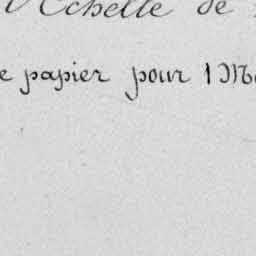 l'Echelle de
e papier pour 1 M